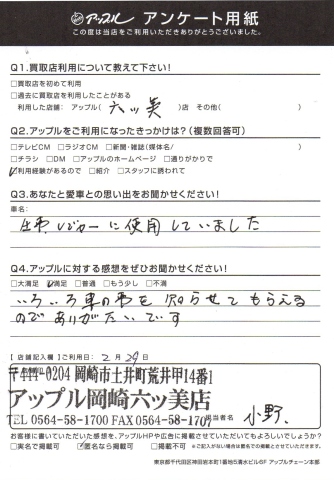 アップル アンケート用紙
この度は当店をご利用いただきありがとうございました。
Q1.買取店利用について教えて下さい!
□買取店を初めて利用
□過去に買取店を利用したことがある
利用した店舗: アップル( 六ッ美 )店 その他( )
Q2.アップルをご利用になったきっかけは?(複数回答可)
□テレビCM □ラジオCM □新聞・雑誌(媒体名/ )
□チラシ □DM □アップルのホームページ □通りがかりで
☑利用経験があるので □紹介 □スタッフに誘われて
Q3.あなたと愛車との思い出をお聞かせください!
車名:
に使用していました
Q4.アップルに対する感想をぜひお聞かせください!
□大満足 ☑満足 □普通 □もう少し □不満
いろいろ車の事を知らせてもらえる
のでありがたいです
【店舗記入欄】ご利用日: 2月29日
〒444-0204 岡崎市土井町荒井甲14番1
アップル岡崎六ッ美店
TEL 0564-58-1700 FAX 0564-58-1701
担当者名 小野
お客様に書いていただいた感想を、アップルHPや広告に掲載させていただいてもよろしいでしょうか?
□実名で掲載可 ☑匿名なら掲載可 □掲載不可
※ご記入がない場合は匿名での掲載とさせていただきます。
東京都千代田区神田岩本町1番地5清水ビル6F アップルチェーン本部